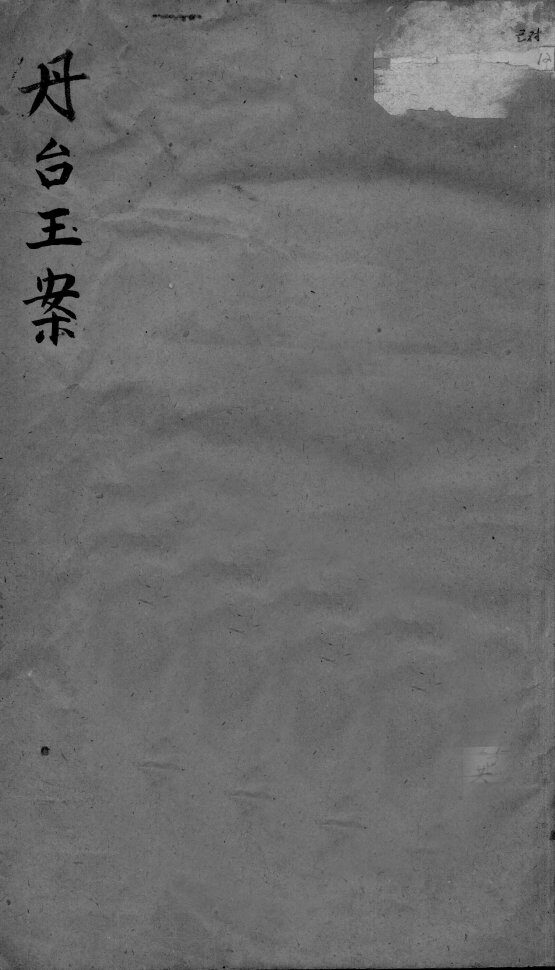 丹台玉案